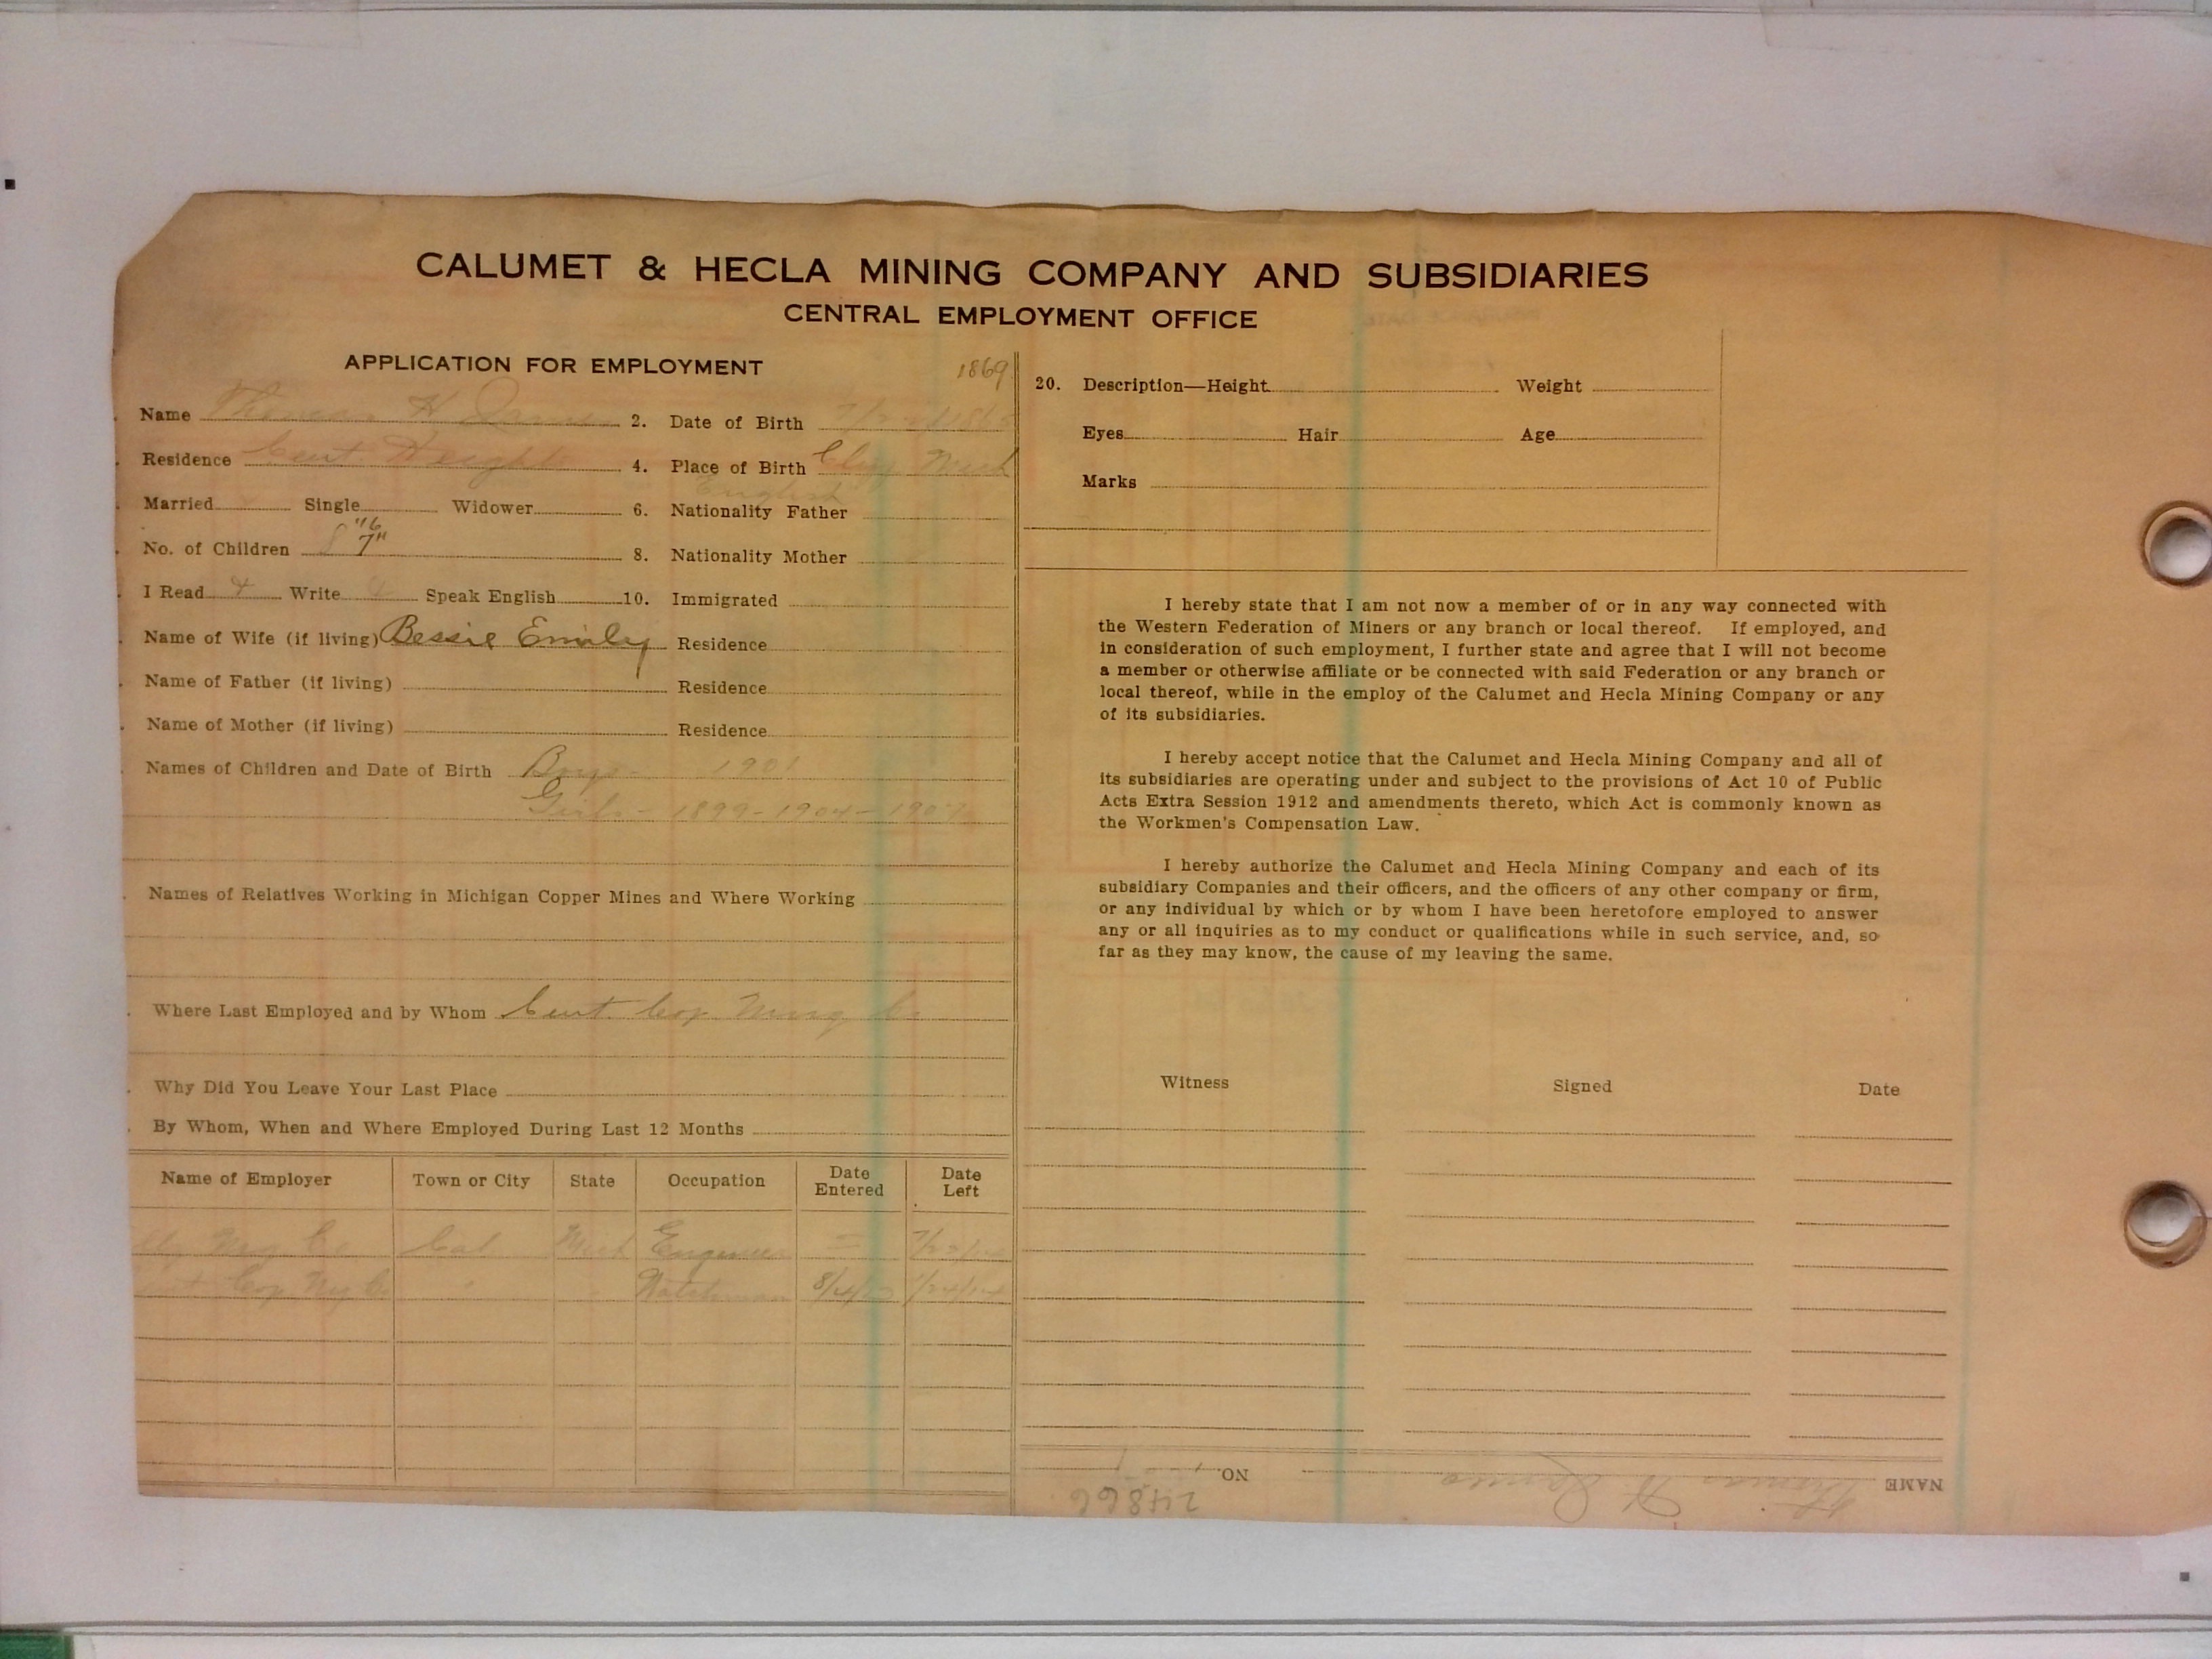 CALUMET & HECLA MINING COMPANY AND SUBSIDIARIES
CENTRAL EMPLOYMENT OFFICE
APPLICATION FOR EMPLOYMENT
1869
Name Thomas H James 2. Date of Birth
Residence Cent. Heights 4. Place of Birth Mich
English
Married Single Widower 6. Nationality Father
"6
No. of Children 8 7" 8. Nationality Mother
I Read Write Speak English 10. Immigrated
Name of Wife (if living) Bessie Emily Residence
Name of Father (if living) Residence
Name of Mother (if living) Residence
Names of Children and Date of Birth Boys - 1901
Girls - 1899 - 1904 - 1907
Names of Relatives Working in Michigan Copper Mines and Where Working
Where Last Employed and by Whom Cent. Cop. Ming Co
Why Did You Leave Your Last Place
By Whom, When and Where Employed During Last 12 Months
Name of Employer Town or City State Occupation Date Entered Date Left
Mg Co Cal Mich Engineer
Cop. Mg Co " Watchman
20. Description—Height Weight
Eyes Hair Age
Marks
I hereby state that I am not now a member of or in any way connected with
the Western Federation of Miners or any branch or local thereof. If employed, and
in consideration of such employment, I further state and agree that I will not become
a member or otherwise affiliate or be connected with said Federation or any branch or
local thereof, while in the employ of the Calumet and Hecla Mining Company or any
of its subsidiaries.
I hereby accept notice that the Calumet and Hecla Mining Company and all of
its subsidiaries are operating under and subject to the provisions of Act 10 of Public
Acts Extra Session 1912 and amendments thereto, which Act is commonly known as
the Workmen's Compensation Law.
I hereby authorize the Calumet and Hecla Mining Company and each of its
subsidiary Companies and their officers, and the officers of any other company or firm,
or any individual by which or by whom I have been heretofore employed to answer
any or all inquiries as to my conduct or qualifications while in such service, and, so
far as they may know, the cause of my leaving the same.
Witness Signed Date
NAME Thomas H. James NO.
24866